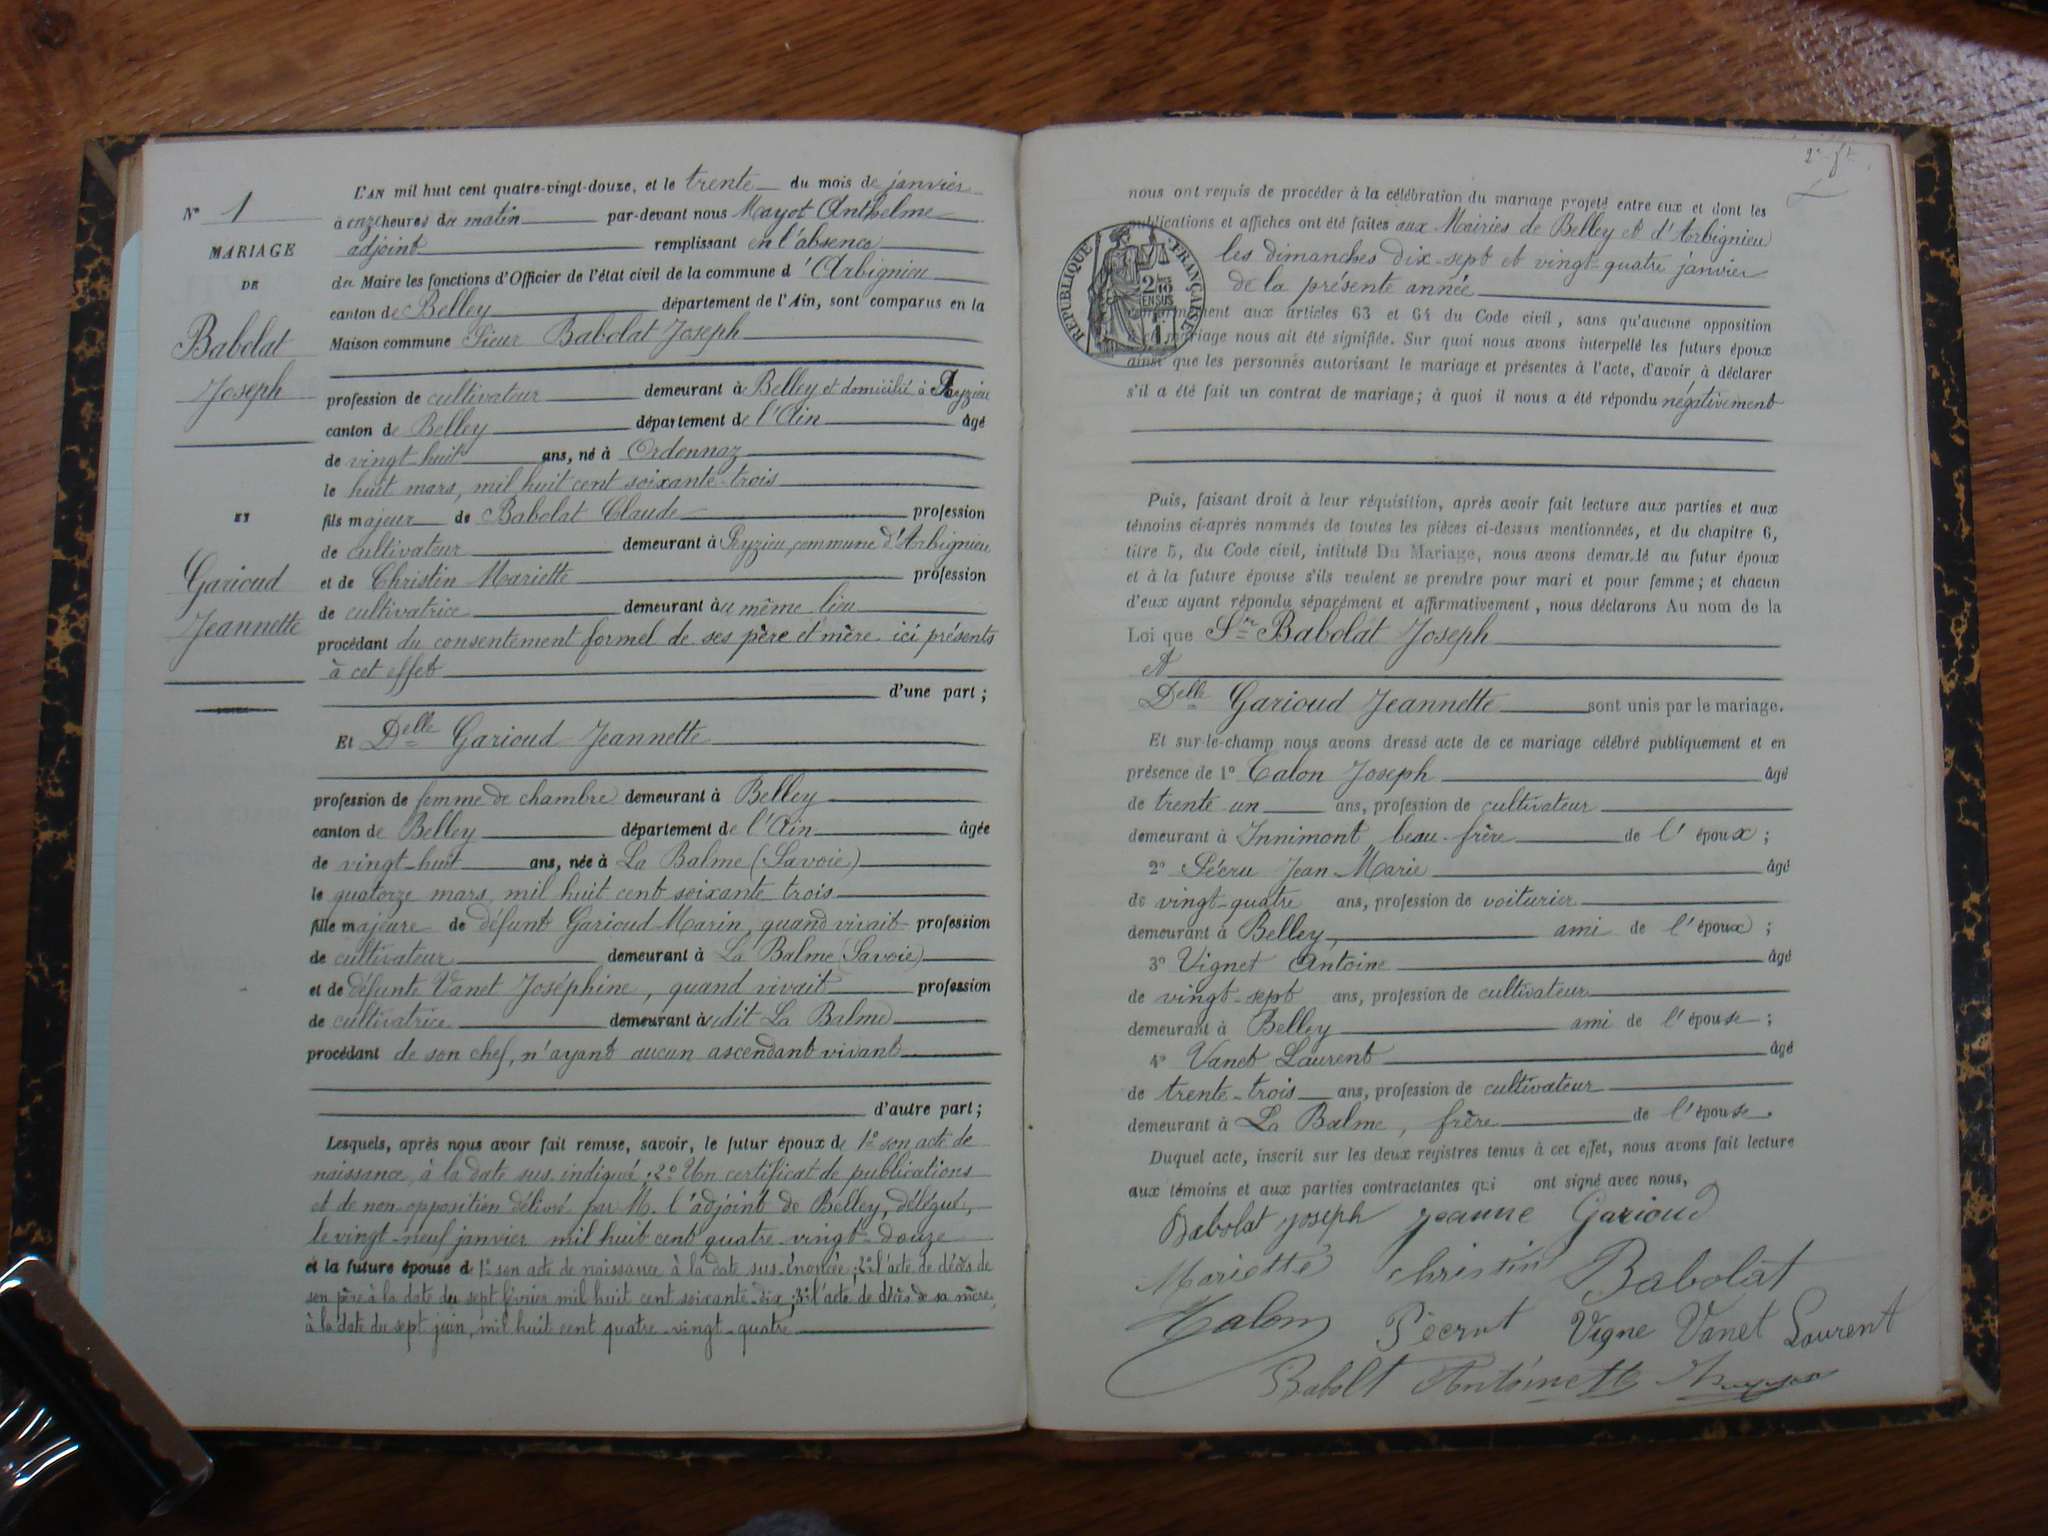 N° 1
MARIAGE
DE
Babolat
Joseph
ET
Garioud
Jeannette
L'AN mil huit cent quatre-vingt-douze, et le trente du mois de janvier
à onze heures du matin par-devant nous Mayot Anthelme
adjoint remplissant en l'absence
du Maire les fonctions d'Officier de l'état civil de la commune d'Arbignieu
canton de Belley département de l'Ain, sont comparus en la
Maison commune Sieur Babolat Joseph
profession de cultivateur demeurant à Belley et domicilié à Peyzieu
canton de Belley département de l'Ain âgé
de vingt-huit ans, né à Ordonnaz
le huit mars, mil huit cent soixante-trois
fils majeur de Babolat Claude profession
de cultivateur demeurant à Peyzieu commune d'Arbignieu
et de Christin Mariette profession
de cultivatrice demeurant au même lieu
procédant du consentement formel de ses père et mère ici présents
à cet effet
d'une part ;
Et Delle Garioud Jeannette
profession de femme de chambre demeurant à Belley
canton de Belley département de l'Ain âgée
de vingt-huit ans, née à La Balme (Savoie)
le quatorze mars, mil huit cent soixante trois
fille majeure de défunt Garioud Marin, quand vivait profession
de cultivateur demeurant à La Balme (Savoie)
et de défunte Vanet Joséphine, quand vivait profession
de cultivatrice demeurant à dit La Balme
procédant de son chef, n'ayant aucun ascendant vivant
d'autre part ;
Lesquels, après nous avoir fait remise, savoir, le futur époux de 1° son acte de
naissance, à la date sus-indiquée ; 2° Un certificat de publications
et de non opposition délivré par M. l'adjoint de Belley, délégué,
le vingt-neuf janvier mil huit cent quatre-vingt-douze
et la future épouse d 1° son acte de naissance à la date sus-énoncée ; 2° l'acte de décès de
son père à la date du sept février mil huit cent soixante-dix ; 3° l'acte de décès de sa mère,
à la date du sept juin, mil huit cent quatre-vingt-quatre
2e ft
nous ont requis de procéder à la célébration du mariage projeté entre eux et dont les
publications et affiches ont été faites aux Mairies de Belley et d'Arbignieu
les dimanches dix-sept et vingt-quatre janvier
de la présente année
RÉPUBLIQUE FRANÇAISE
2/10 EN SUS
conformément aux articles 63 et 64 du Code civil, sans qu'aucune opposition
à ce mariage nous ait été signifiée. Sur quoi nous avons interpellé les futurs époux
ainsi que les personnes autorisant le mariage et présentes à l'acte, d'avoir à déclarer
s'il a été fait un contrat de mariage ; à quoi il nous a été répondu négativement
Puis, faisant droit à leur réquisition, après avoir fait lecture aux parties et aux
témoins ci-après nommés de toutes les pièces ci-dessus mentionnées, et du chapitre 6,
titre 5, du Code civil, intitulé Du Mariage, nous avons demandé au futur époux
et à la future épouse s'ils veulent se prendre pour mari et pour femme ; et chacun
d'eux ayant répondu séparément et affirmativement, nous déclarons Au nom de la
Loi que Sr Babolat Joseph
et
Delle Garioud Jeannette sont unis par le mariage.
Et sur-le-champ nous avons dressé acte de ce mariage célébré publiquement et en
présence de 1° Talon Joseph âgé
de trente un ans, profession de cultivateur
demeurant à Innimont beau-frère de l'époux ;
2° Pécru Jean Marie âgé
de vingt-quatre ans, profession de voiturier
demeurant à Belley, ami de l'époux ;
3° Vignet Antoine âgé
de vingt-sept ans, profession de cultivateur
demeurant à Belley ami de l'épouse ;
4° Vanet Laurent âgé
de trente-trois ans, profession de cultivateur
demeurant à La Balme, frère de l'épouse.
Duquel acte, inscrit sur les deux registres tenus à cet effet, nous avons fait lecture
aux témoins et aux parties contractantes qui ont signé avec nous,
Babolat Joseph Jeanne Garioud
Mariette Christin Babolat
Talon Pécrut Vigne Vanet Laurent
Babolt Antoinette